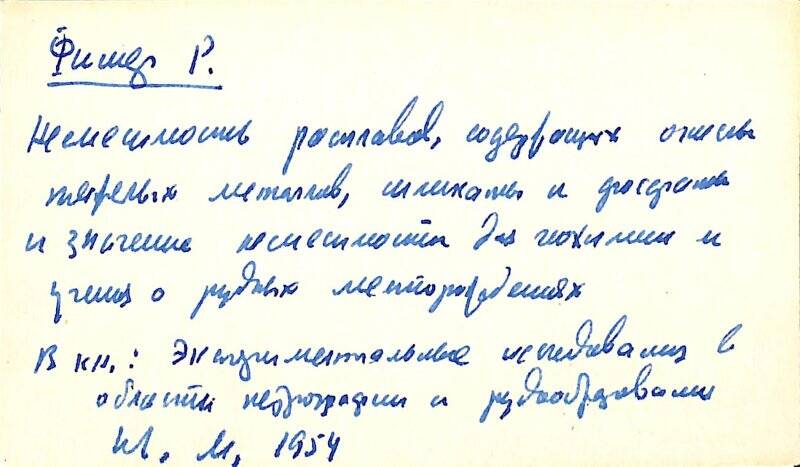 Фишер Р.
Несмесимость расплавов, содержащих окислы
тяжелых металлов, силикаты и фосфаты
и значение несмесимости для геохимии и
учения о рудных месторождениях
В кн.: Экспериментальные исследования в
области петрографии и рудообразования
ИЛ, М, 1954